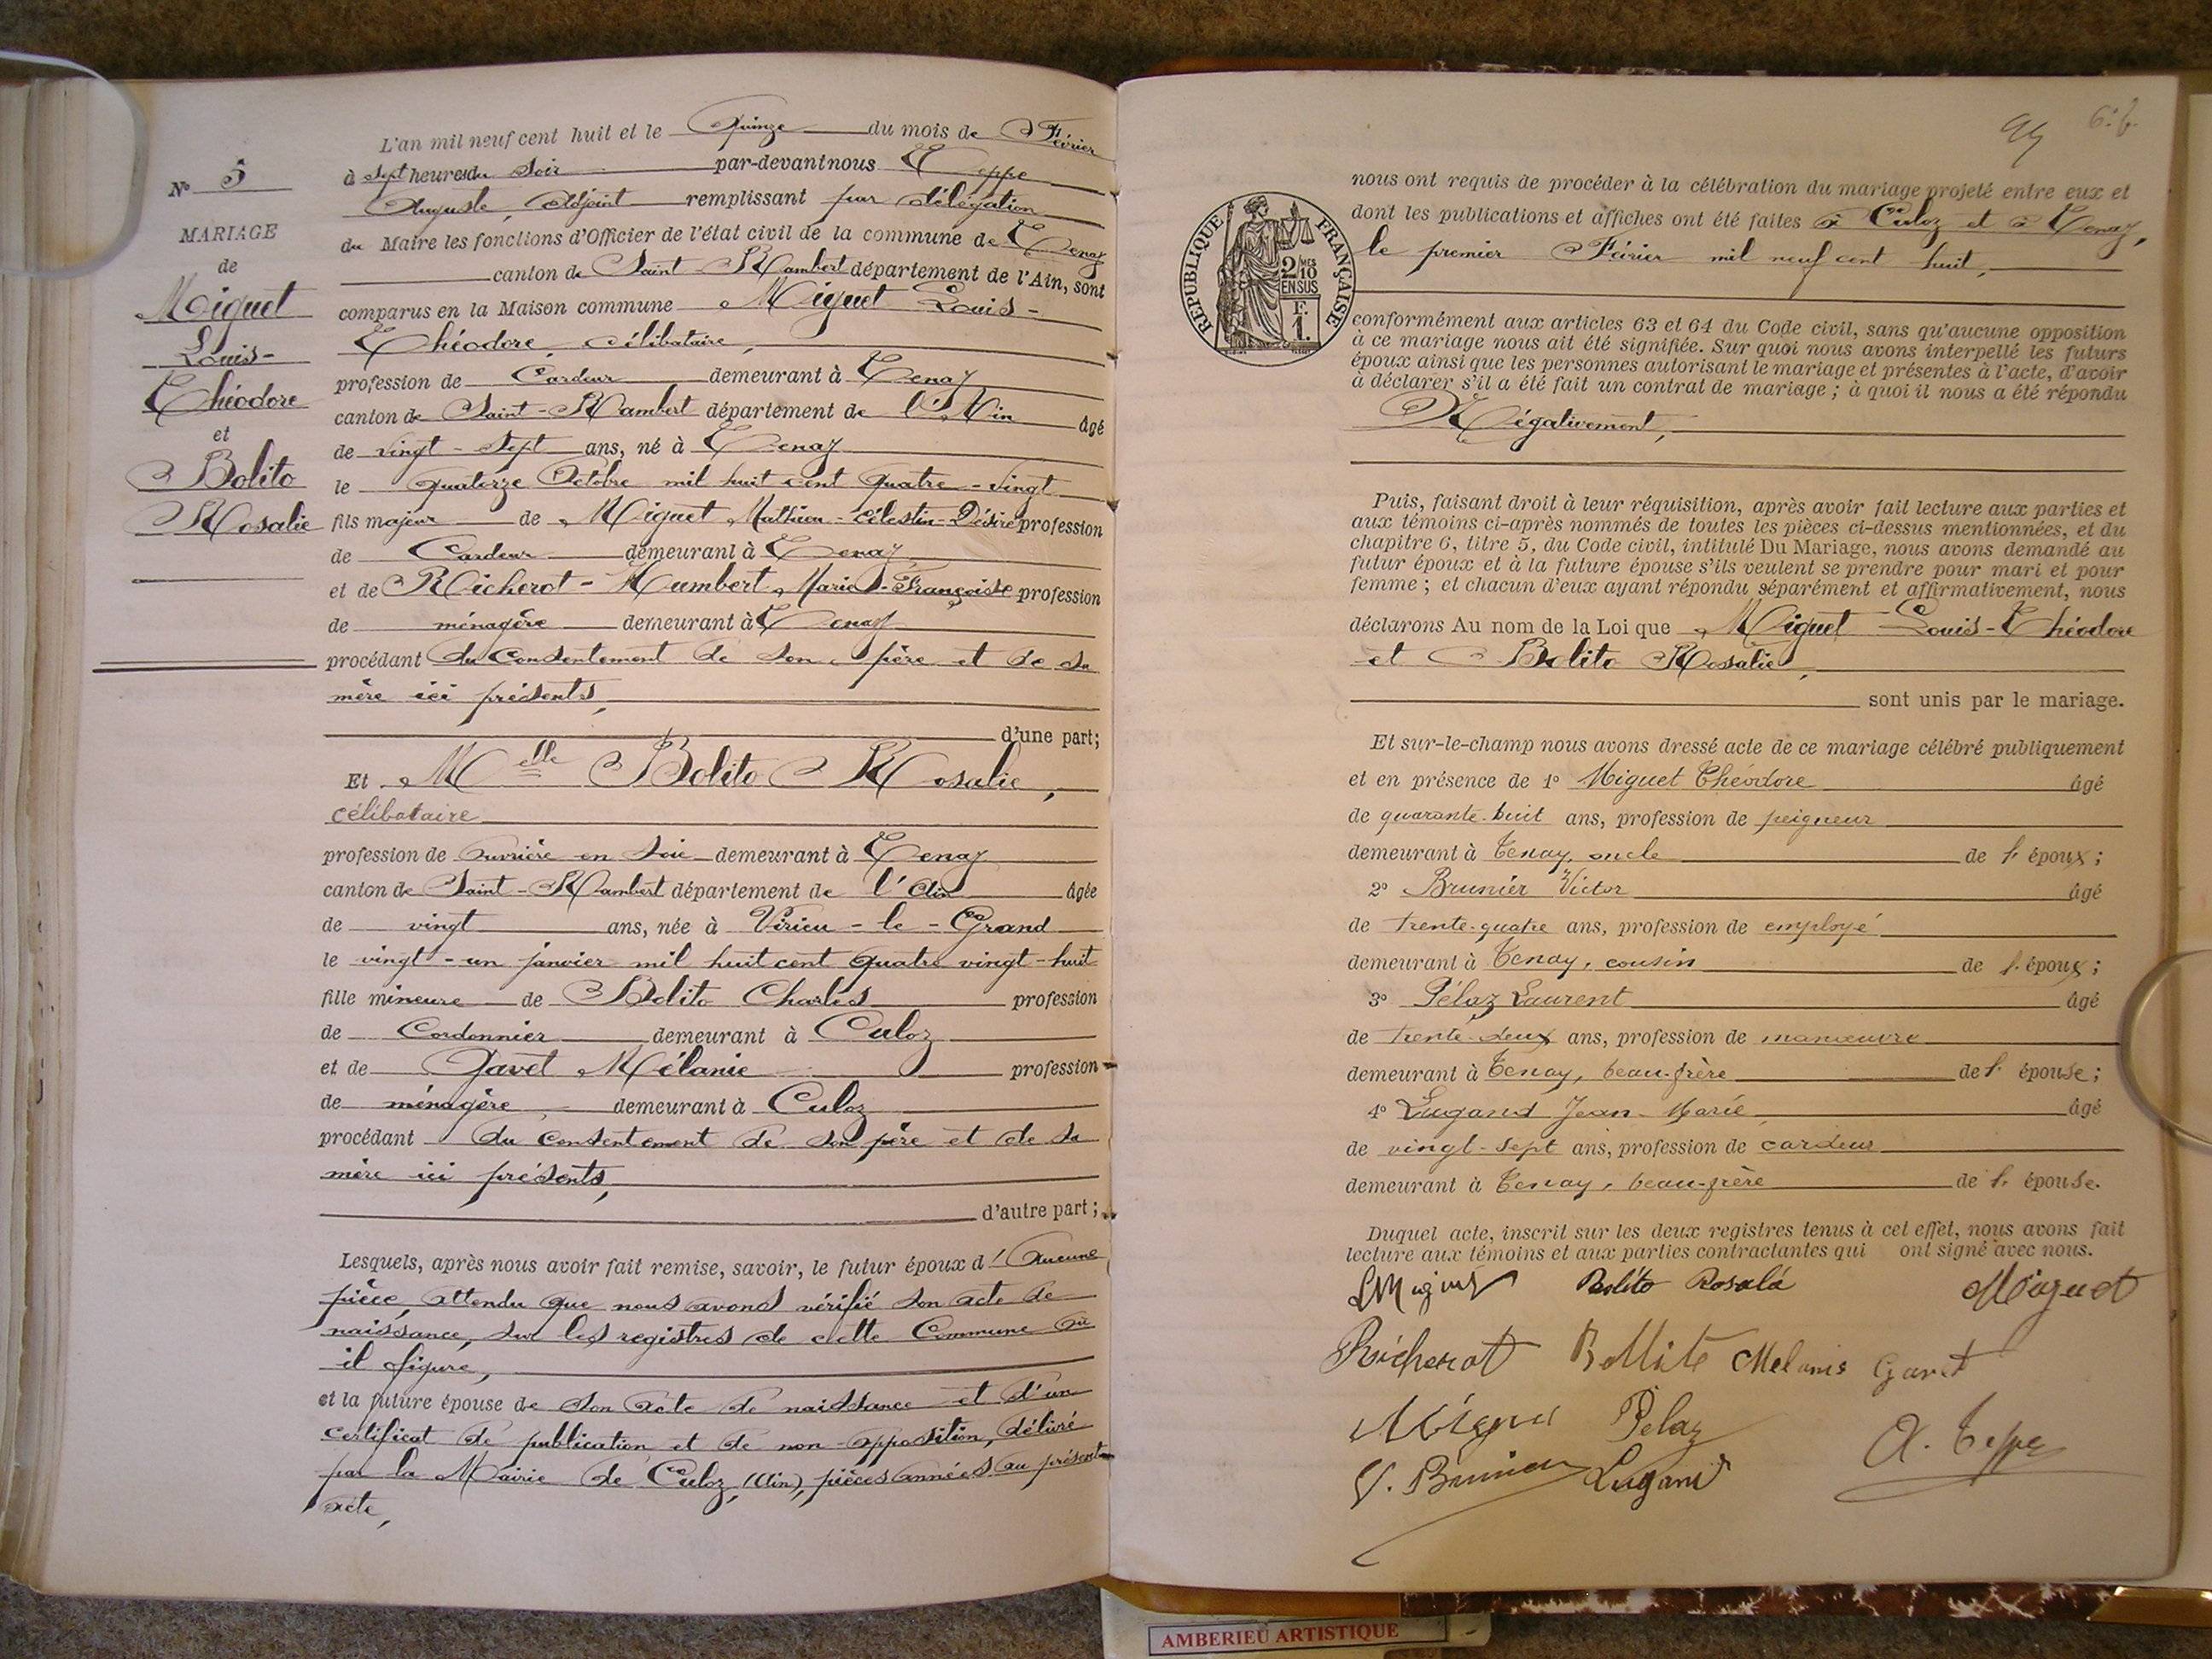 N° 5
MARIAGE
de
Miguet
Louis-
Théodore
et
Bolito
Rosalie
L'an mil neuf cent huit et le Quinze du mois de Février
à Sept heures du Soir par-devant nous Teppe
Auguste, Adjoint remplissant par délégation
du Maire les fonctions d'Officier de l'état civil de la commune de Tenay
canton de Saint-Rambert département de l'Ain, sont
comparus en la Maison commune Miguet Louis-
Théodore, célibataire,
profession de Cardeur demeurant à Tenay
canton de Saint-Rambert département de l'Ain âgé
de vingt-sept ans, né à Tenay
le quatorze Octobre mil huit cent quatre-vingt
fils majeur de Miguet Mathieu-Célestin-Désiré profession
de Cardeur demeurant à Tenay
et de Richerot-Humbert, Marie-Françoise profession
de ménagère demeurant à Tenay
procédant du Consentement de son père et de sa
mère ici présents,
d'une part;
Et Melle Bolito Rosalie,
célibataire
profession de ouvrière en soie demeurant à Tenay
canton de Saint-Rambert département de l'Ain âgée
de vingt ans, née à Virieu-le-Grand
le vingt-un janvier mil huit cent quatre vingt-huit
fille mineure de Bolito Charles profession
de Cordonnier demeurant à Culoz
et de Gavet Mélanie profession
de ménagère demeurant à Culoz
procédant du consentement de son père et de sa
mère ici présents,
d'autre part;
Lesquels, après nous avoir fait remise, savoir, le futur époux d'Aucune
pièce, attendu que nous avons vérifié son acte de
naissance, sur les registres de cette Commune où
il figure,
et la future épouse de son acte de naissance et d'un
certificat de publication et de non-opposition, délivré
par la Mairie de Culoz, (Ain), pièces annexées au présent
acte,
6: f.
RÉPUBLIQUE FRANÇAISE
2/10 MES
EN SUS
F.
1.
nous ont requis de procéder à la célébration du mariage projeté entre eux et
dont les publications et affiches ont été faites à Culoz et à Tenay,
le premier Février mil neuf cent huit,
conformément aux articles 63 et 64 du Code civil, sans qu'aucune opposition
à ce mariage nous ait été signifiée. Sur quoi nous avons interpellé les futurs
époux ainsi que les personnes autorisant le mariage et présentes à l'acte, d'avoir
à déclarer s'il a été fait un contrat de mariage ; à quoi il nous a été répondu
Négativement,
Puis, faisant droit à leur réquisition, après avoir fait lecture aux parties et
aux témoins ci-après nommés de toutes les pièces ci-dessus mentionnées, et du
chapitre 6, titre 5, du Code civil, intitulé Du Mariage, nous avons demandé au
futur époux et à la future épouse s'ils veulent se prendre pour mari et pour
femme ; et chacun d'eux ayant répondu séparément et affirmativement, nous
déclarons Au nom de la Loi que Miguet Louis-Théodore
et Bolito Rosalie,
sont unis par le mariage.
Et sur-le-champ nous avons dressé acte de ce mariage célébré publiquement
et en présence de 1° Miguet Théodore âgé
de quarante-huit ans, profession de peigneur
demeurant à Tenay, oncle de l' époux ;
2° Brunier Victor âgé
de trente-quatre ans, profession de employé
demeurant à Tenay, cousin de l' époux ;
3° Pélaz Laurent âgé
de trente-deux ans, profession de manœuvre
demeurant à Tenay, beau-frère de l' épouse ;
4° Lugand Jean-Marie âgé
de vingt-sept ans, profession de cardeur
demeurant à Tenay, beau-frère de l' épouse.
Duquel acte, inscrit sur les deux registres tenus à cet effet, nous avons fait
lecture aux témoins et aux parties contractantes qui ont signé avec nous.
LMiguet Bolito Rosalé Miguet
Richerot Bollito Melanie Gavet
Miguet Pelaz
A. Teppe
V. Brunier Lugand
AMBERIEU ARTISTIQUE